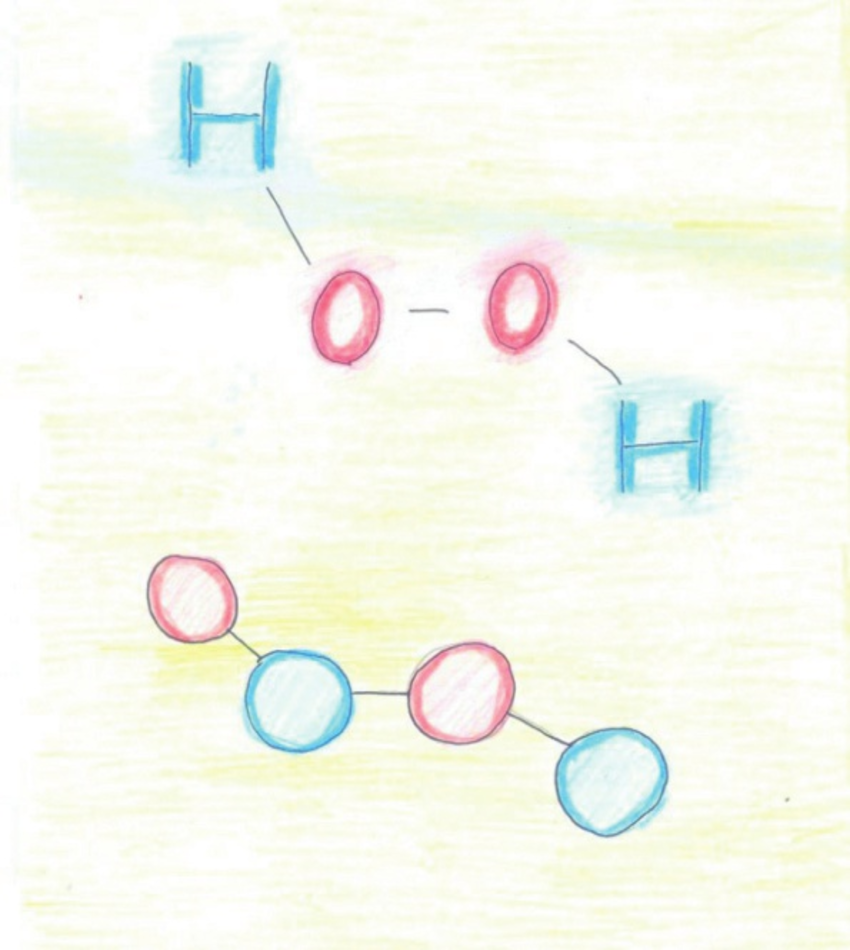 H
O – O
H